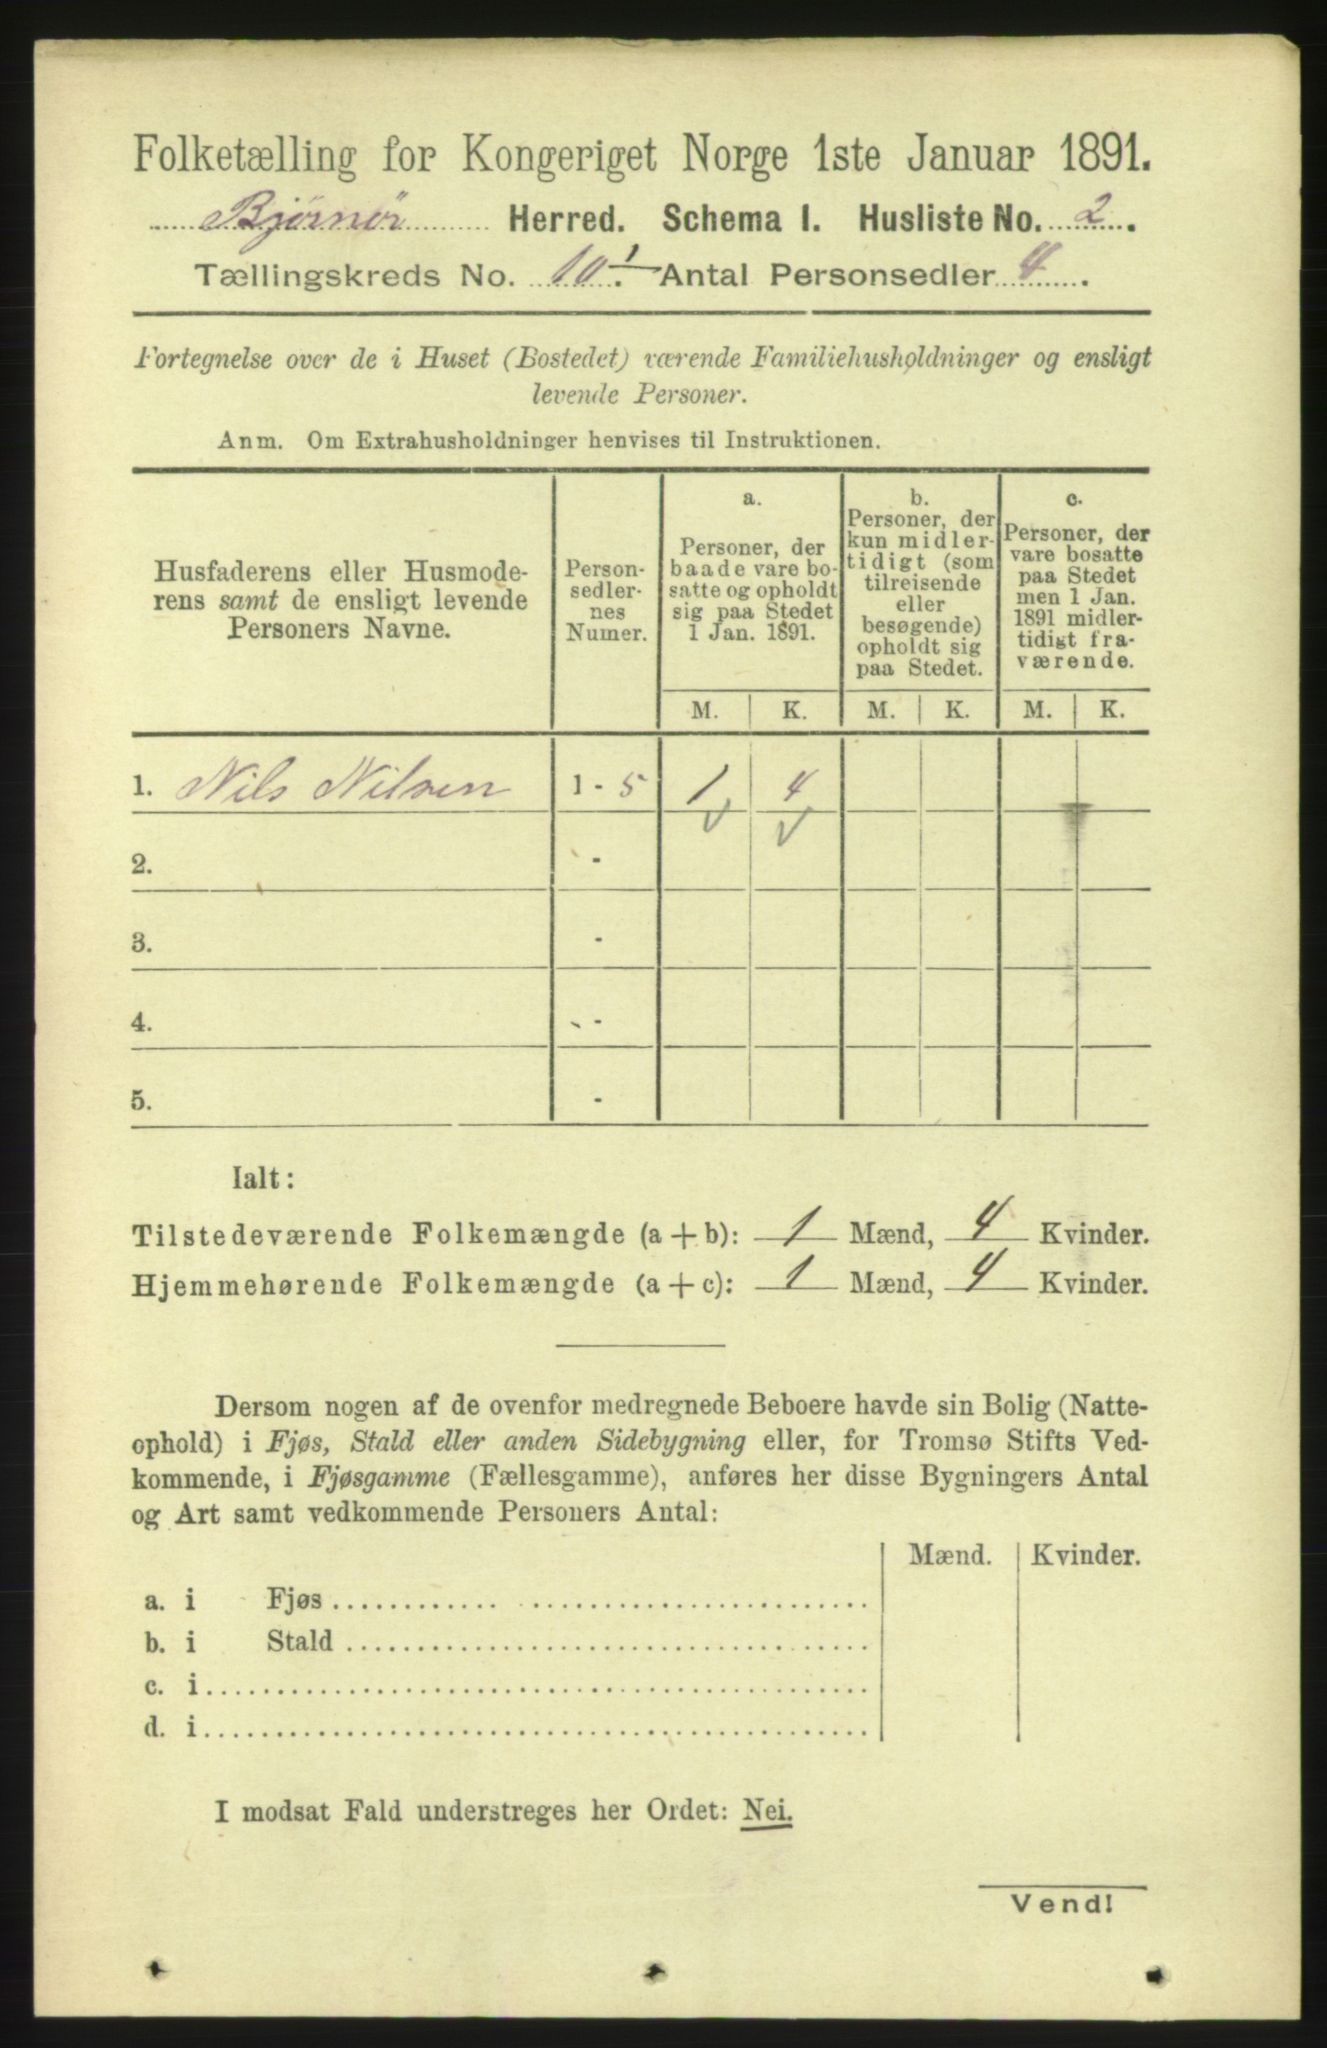 Folketælling for Kongeriget Norge 1ste Januar 1891.
Bjørnør Herred. Schema I. Husliste No. 2.
Tællingskreds No. 10.1 Antal Personsedler 4.
Fortegnelse over de i Huset (Bostedet) værende Familiehusholdninger og ensligt
levende Personer.
Anm. Om Extrahusholdninger henvises til Instruktionen.
Husfaderens eller Husmode-
rens samt de ensligt levende
Personers Navne.
Person-
sedler-
nes
Numer.
a.
Personer, der
baade vare bo-
satte og opholdt
sig paa Stedet
1 Jan. 1891.
b.
Personer, der
kun midler-
tidigt (som
tilreisende
eller
besøgende)
opholdt sig
paa Stedet.
c.
Personer, der
vare bosatte
paa Stedet
men 1 Jan.
1891 midler-
tidigt fra-
værende.
M. K. M. K. M. K.
1. Nils Nilsen 1 - 5 1 4
2. -
3. -
4. -
5. -
Ialt:
Tilstedeværende Folkemængde (a + b): 1 Mænd, 4 Kvinder.
Hjemmehørende Folkemængde (a + c): 1 Mænd, 4 Kvinder.
Dersom nogen af de ovenfor medregnede Beboere havde sin Bolig (Natte-
ophold) i Fjøs, Stald eller anden Sidebygning eller, for Tromsø Stifts Ved-
kommende, i Fjøsgamme (Fællesgamme), anføres her disse Bygningers Antal
og Art samt vedkommende Personers Antal:
Mænd. Kvinder.
a. i Fjøs
b. i Stald
c. i
d. i
I modsat Fald understreges her Ordet: Nei.
Vend!